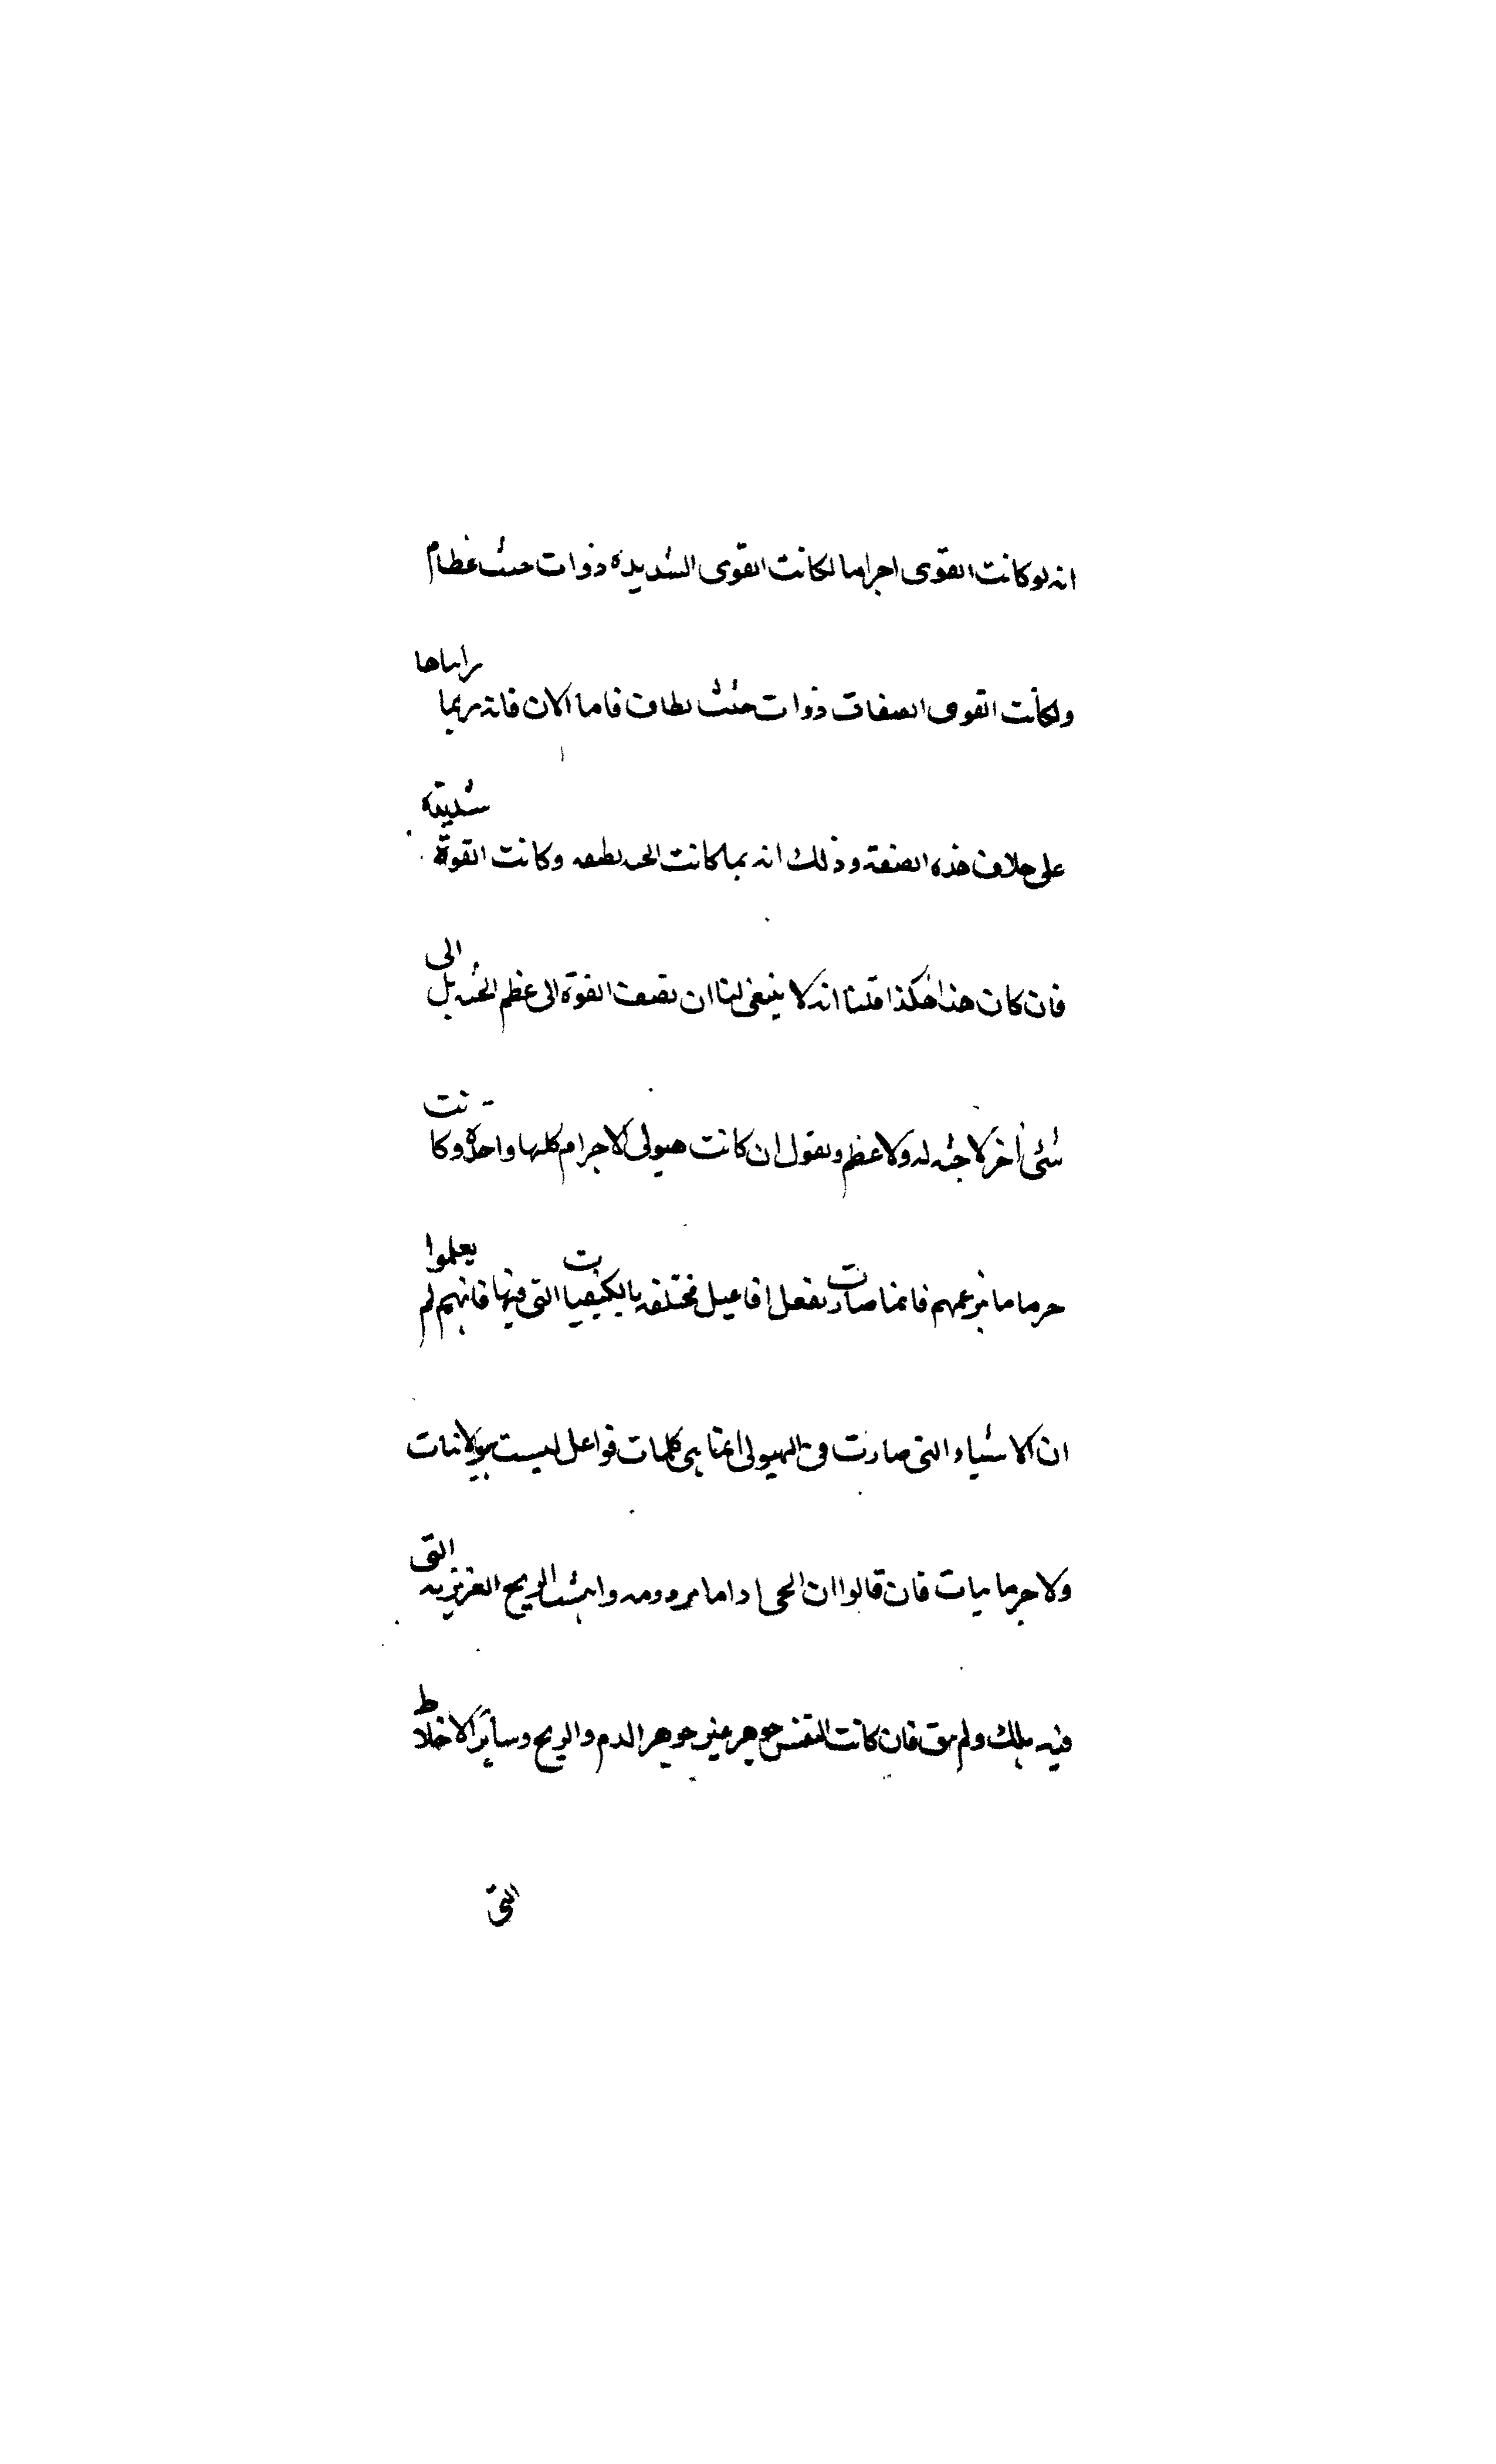 انه لو كانت القوى اجراما لكانت القوى الشديده ذوات جثث عظام
ولكانت القوى الضعفات ذوات جثث لطاف فاما الان فانه ربما راىناها
على خلاف هذه الصفة وذلك انه ربما كانت الجثه لطىفه وكانت القوة شديدة
فان كان هذا هكذا قلنا انه لا ينبغى لنا ان نضىف القوة الى عظم الجثه بل الى
شئ اخر لا جثه له ولا عظم ونقول ان كانت هيولى الاجرام كلها واحدة وكانت
جرما ما بزعمهم فانما صارت تفعل افاعيل مختلفه بالكيفيات التى فيها فانهم لم يعلموا
ان الاشياء التى صارت فى الهيولى انما هى كلمات فواعل ليست هيولانيات
ولا جرمانيات فان قالوا ان الحى اذا ما برد دمه وانفشت الريح الغريزيه التى
فيه هلك ولم يبق فان كانت النفس جوهر غير جوهر الدم والريح وسائر الاخلاط
التى